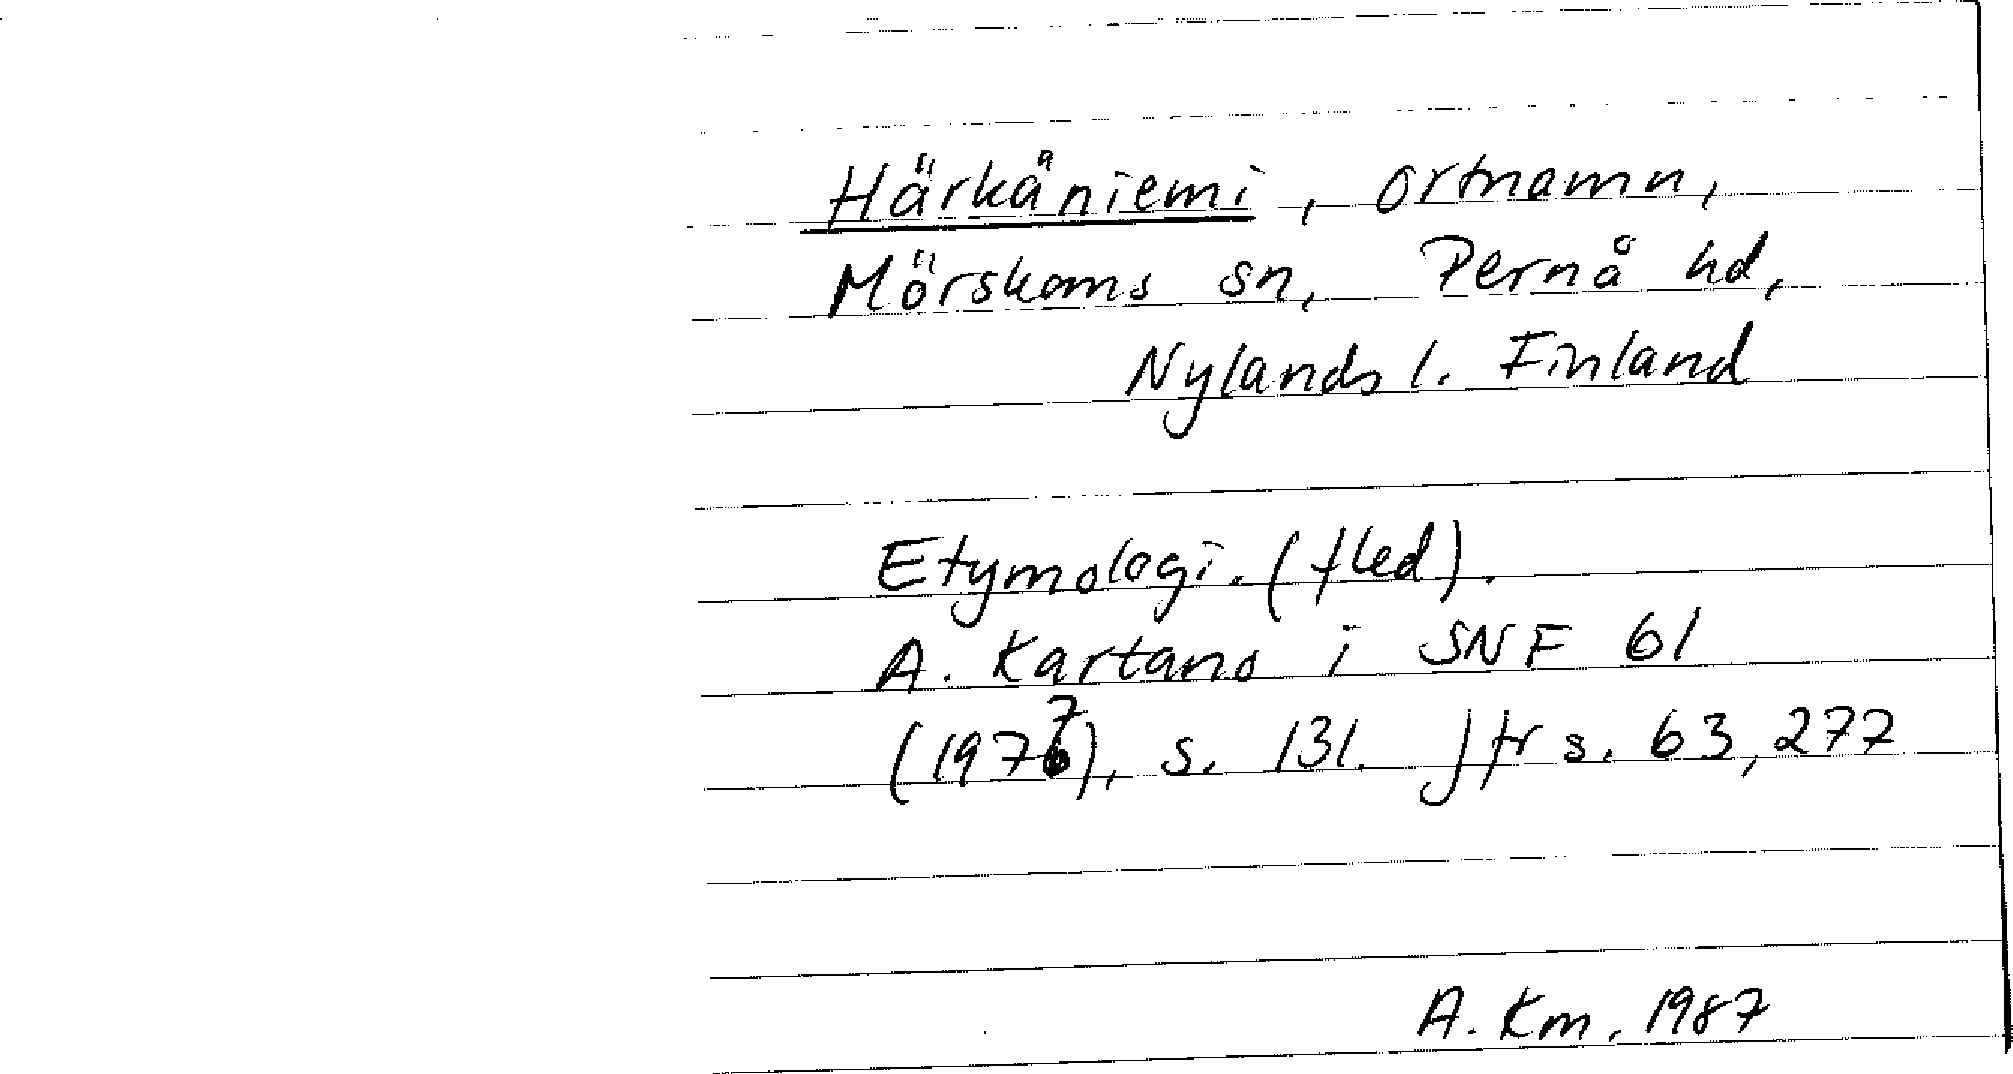 Härkäniemi, ortnamn,
Mörskoms sn, Pernå hd,
Nylands l. Finland
Etymologi. (fled).
A. Kartano i SNF 61
(1977), s. 131. Jfr s. 63, 277
A. Km. 1987